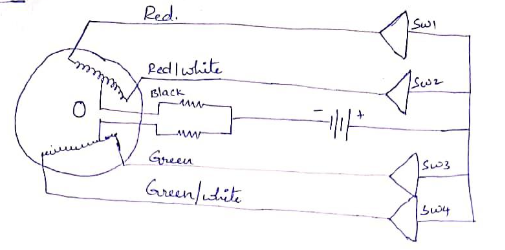 Red.
SW1
Red/white
SW2
Black
- +
Green
SW3
Green/white
SW4